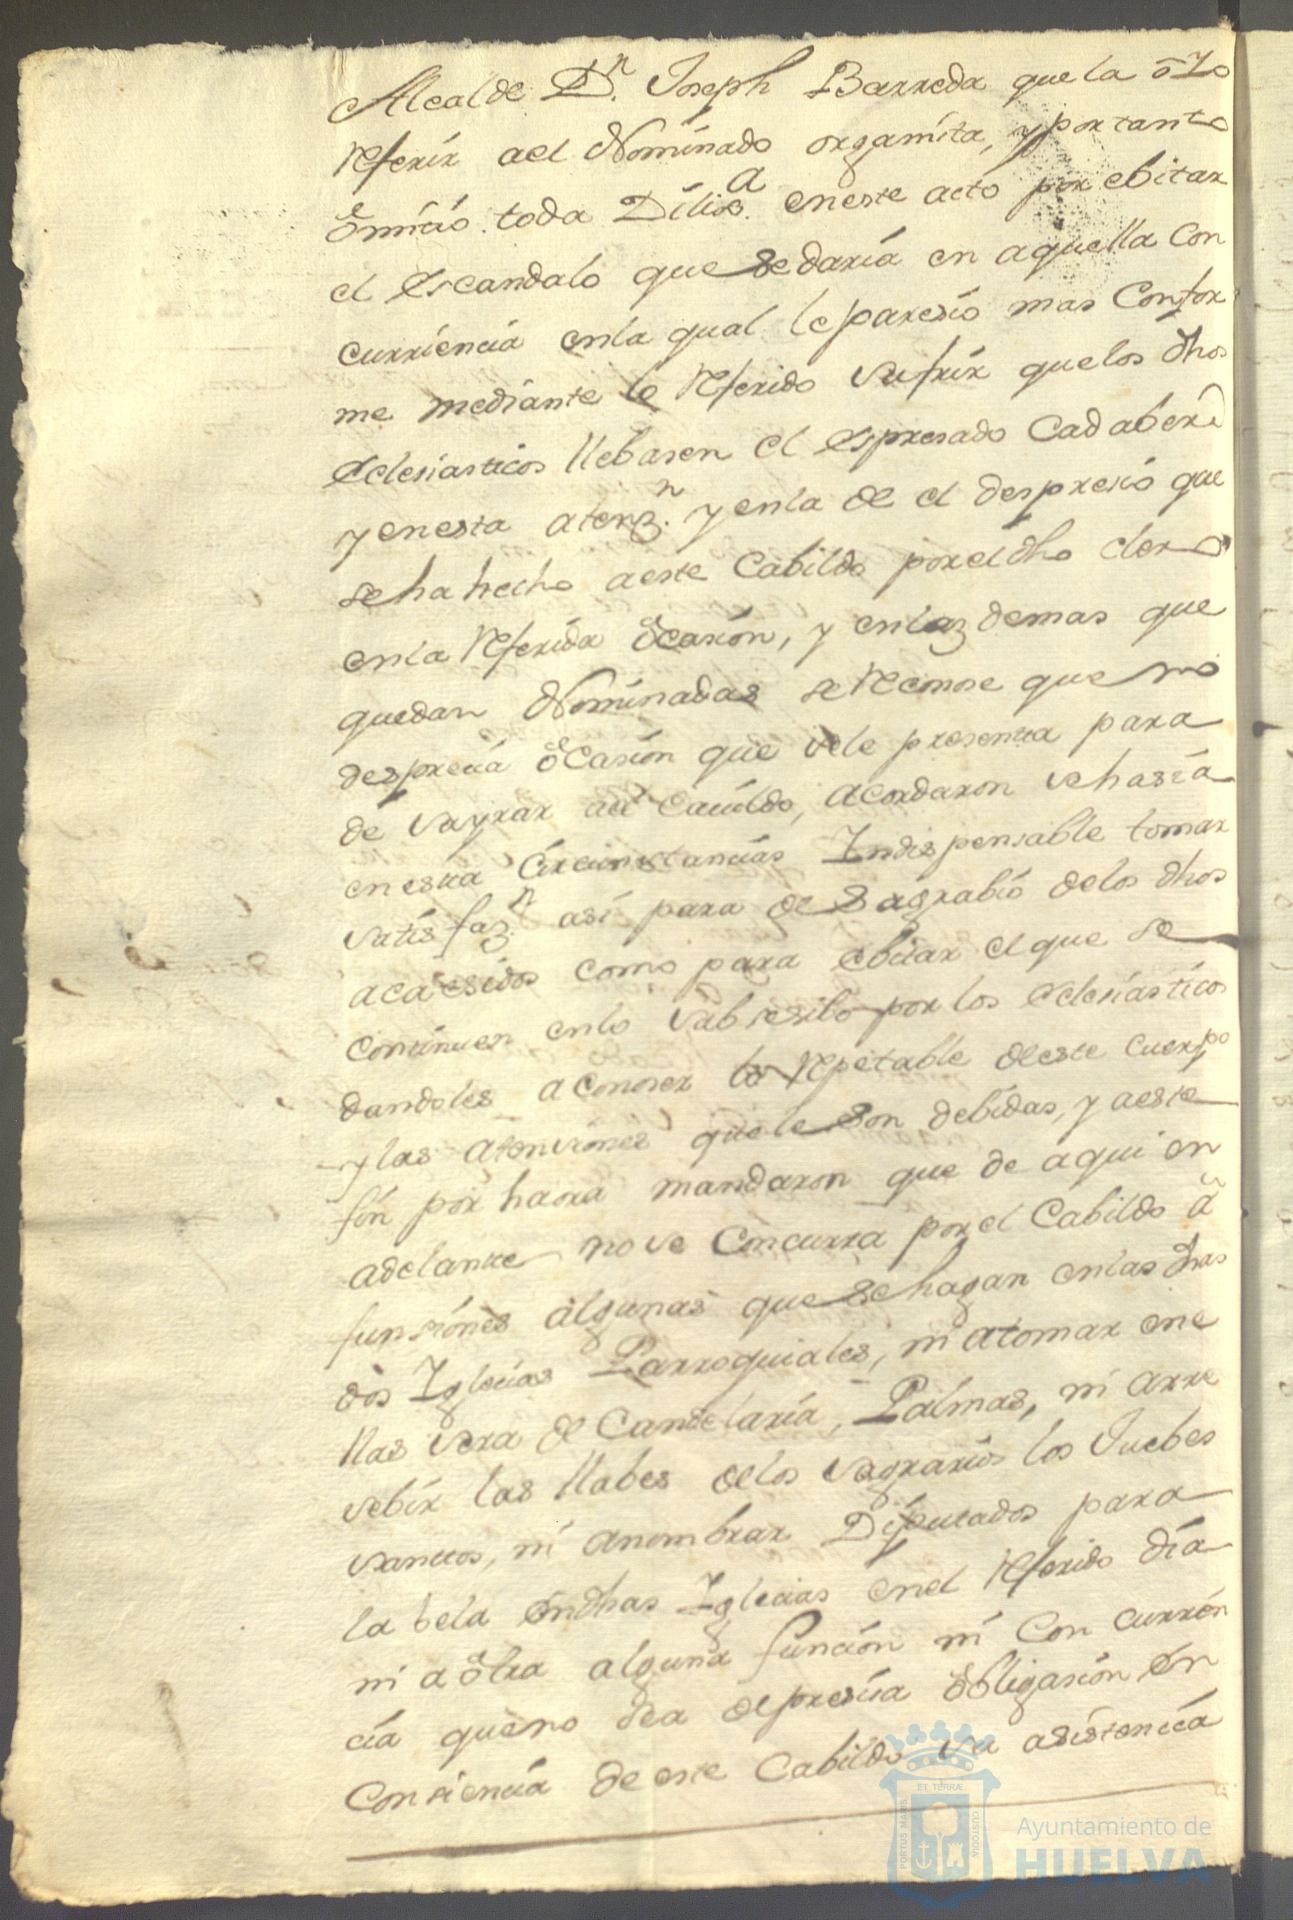 Alcalde Dn. Joseph Barreda que la oyo
Referir ael Nominado organista, y portanto
Omitio toda Dilig.a eneste acto por ebitar
el escandalo que sedaria en aquella Con
curriencia enla qual le paresio mas Confor
me mediante lo Referido sufrir quelos dhos
Eclesiasticos llebasen el espresado Cadaber
y enesta atenz.n y enla de el despresio que
seha hecho aeste Cabildo porel dho clero
enla Referida Ocasion, y enlaz demas que
quedan Nominadas se Reconose que no
desprecia Ocasion que sele presenta para
de sayrar aeste Cavildo, acordaron sehasia
en esta Circunstancias Indispensable tomar
satisfaz.n asi para desagrabio delos dhos
acaesidos como para ebitar el que se
continuen enlo Subsesibo por los eclesiasticos
dandoles aconoser lo Repetable deeste cuerpo
y las atensiones quele son debidas, y aeste
fin por haora mandaron que de aqui en
adelante no se Concurra por el Cabildo a
funsiones algunas que se hagan enlas dhas
dos Iglecias Parroquiales, ni atomar ene
llas sera de Candelaria, Palmas, ni arre
sebir las llabes delos sagrarios los Juebes
santtos, ni anombrar Diputados para
la bela endhas Iglecias enel Referido dia
ni a otra alguna funcion ni Con curren
cia queno sea depresisa obligasion en
Consiencia de este Cabildo su asistencia
ET TERRÆ
PORTUS MARIS
CUSTODIA
Ayuntamiento de
HUELVA